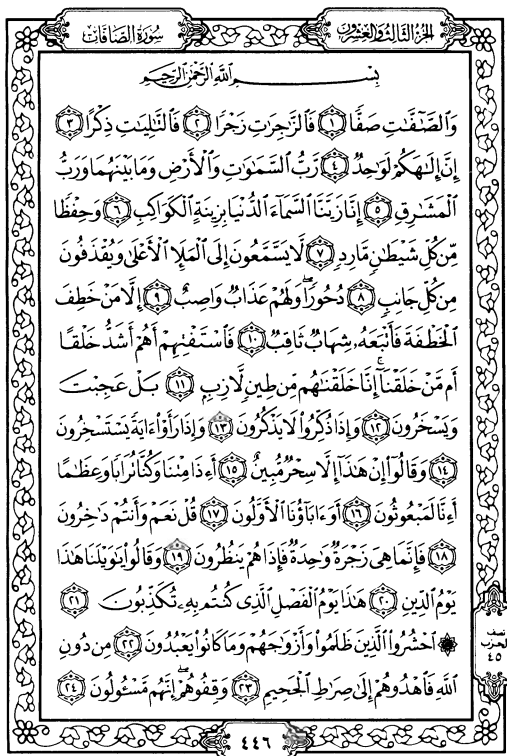 الجزء الثالث والعشرون
سورة الصافات
بِسْمِ اللَّهِ الرَّحْمَٰنِ الرَّحِيمِ
وَالصَّٰٓفَّٰتِ صَفًّا ١ فَالزَّٰجِرَٰتِ زَجْرًا ٢ فَالتَّٰلِيَٰتِ ذِكْرًا ٣
إِنَّ إِلَٰهَكُمْ لَوَٰحِدٌ ٤ رَّبُّ السَّمَٰوَٰتِ وَالْأَرْضِ وَمَا بَيْنَهُمَا وَرَبُّ
الْمَشَٰرِقِ ٥ إِنَّا زَيَّنَّا السَّمَآءَ الدُّنْيَا بِزِينَةٍ الْكَوَاكِبِ ٦ وَحِفْظًا
مِّن كُلِّ شَيْطَٰنٍ مَّارِدٍ ٧ لَّا يَسَّمَّعُونَ إِلَى الْمَلَإِ الْأَعْلَىٰ وَيُقْذَفُونَ
مِن كُلِّ جَانِبٍ ٨ دُحُورًا ۖ وَلَهُمْ عَذَابٌ وَاصِبٌ ٩ إِلَّا مَنْ خَطِفَ
الْخَطْفَةَ فَأَتْبَعَهُۥ شِهَابٌ ثَاقِبٌ ١٠ فَاسْتَفْتِهِمْ أَهُمْ أَشَدُّ خَلْقًا
أَم مَّنْ خَلَقْنَآ ۚ إِنَّا خَلَقْنَٰهُم مِّن طِينٍ لَّازِبٍ ١١ بَلْ عَجِبْتَ
وَيَسْخَرُونَ ١٢ وَإِذَا ذُكِّرُوا لَا يَذْكُرُونَ ١٣ وَإِذَا رَأَوْا ءَايَةً يَسْتَسْخِرُونَ
١٤ وَقَالُوٓا إِنْ هَٰذَآ إِلَّا سِحْرٌ مُّبِينٌ ١٥ أَءِذَا مِتْنَا وَكُنَّا تُرَابًا وَعِظَٰمًا
أَءِنَّا لَمَبْعُوثُونَ ١٦ أَوَءَابَآؤُنَا الْأَوَّلُونَ ١٧ قُلْ نَعَمْ وَأَنتُمْ دَٰخِرُونَ
١٨ فَإِنَّمَا هِىَ زَجْرَةٌ وَٰحِدَةٌ فَإِذَا هُمْ يَنظُرُونَ ١٩ وَقَالُوا يَٰوَيْلَنَا هَٰذَا
يَوْمُ الدِّينِ ٢٠ هَٰذَا يَوْمُ الْفَصْلِ الَّذِى كُنتُم بِهِۦ تُكَذِّبُونَ ٢١
۞ احْشُرُوا الَّذِينَ ظَلَمُوا وَأَزْوَٰجَهُمْ وَمَا كَانُوا يَعْبُدُونَ ٢٢ مِن دُونِ
اللَّهِ فَاهْدُوهُمْ إِلَىٰ صِرَٰطِ الْجَحِيمِ ٢٣ وَقِفُوهُمْ ۖ إِنَّهُم مَّسْـُٔولُونَ ٢٤
نصف
الحزب
٤٥
٤٤٦